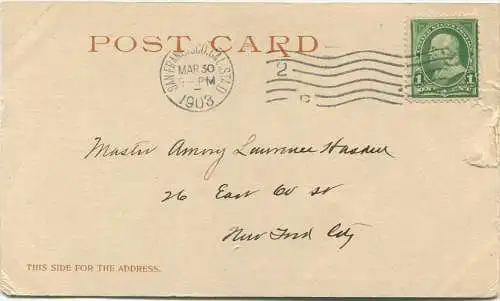 POST CARD
SAN FRANCISCO, CAL. STA. D
MAR 30
PM
1903
1 1
ONE CENT
Master Amory Lawrence Haskell
26 East 60 st
New York City
THIS SIDE FOR THE ADDRESS.